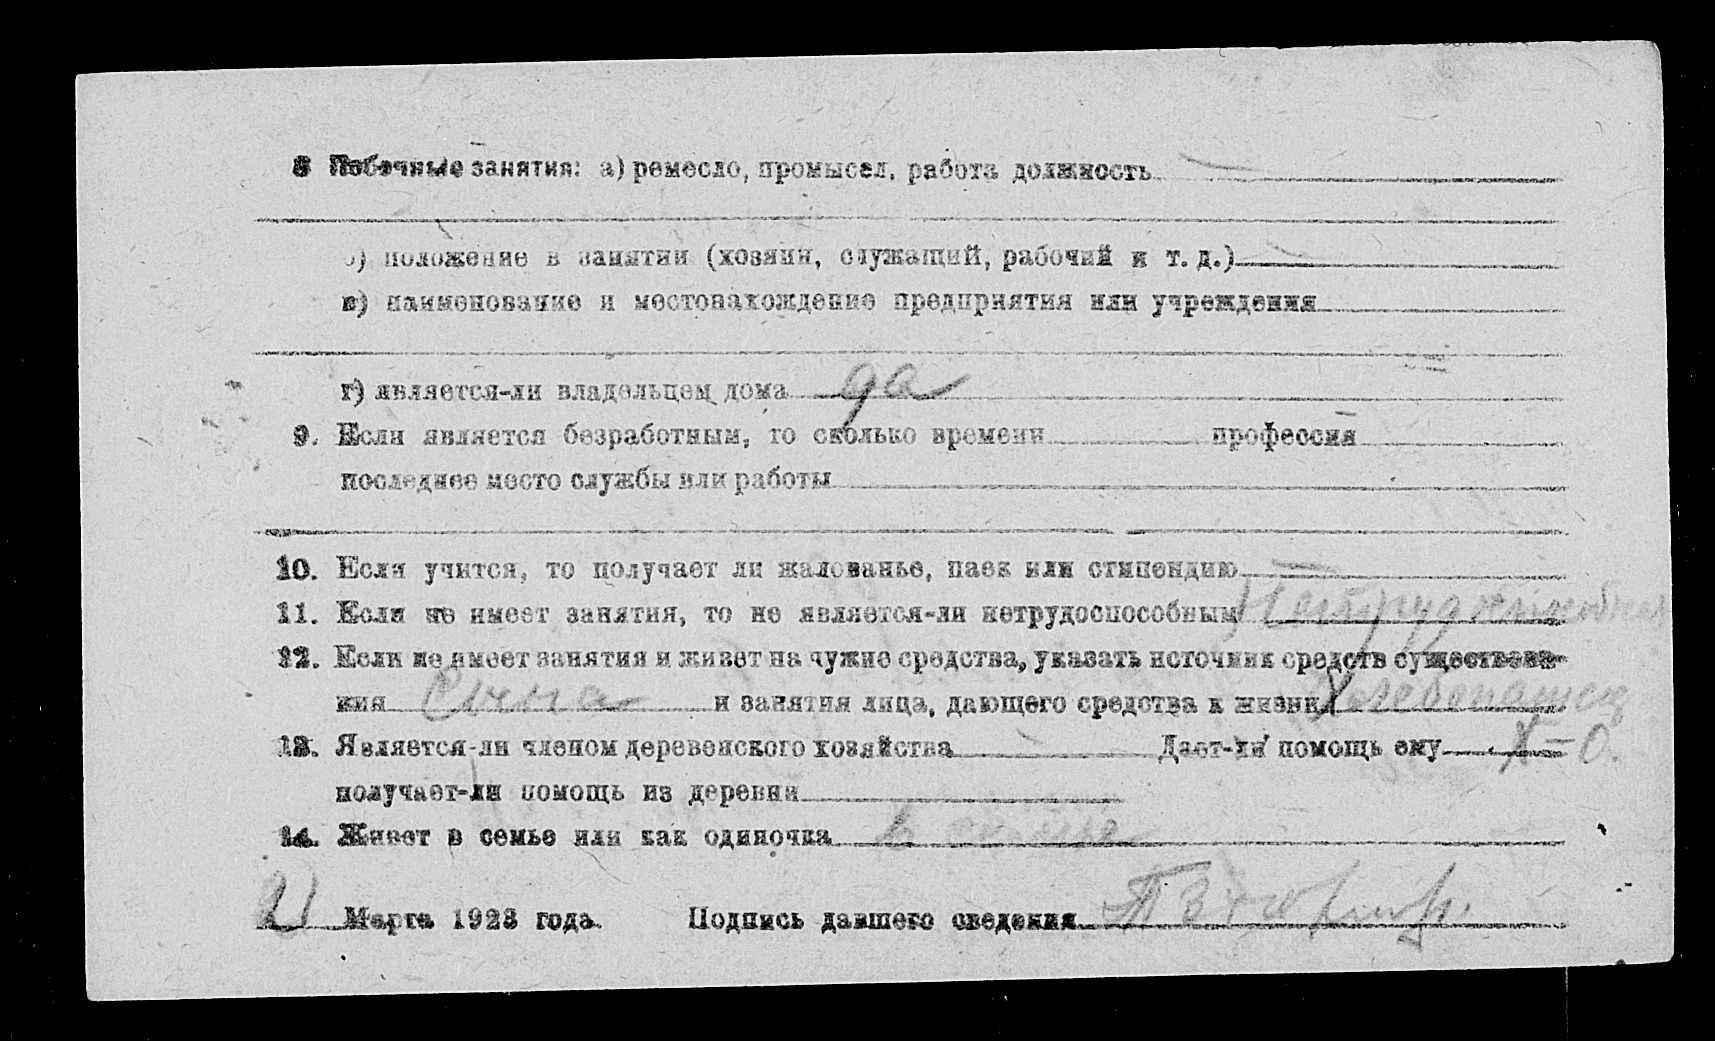 8 Побочные занятия: а) ремесло, промысел, работа должность —
б) положение в занятии (хозяин, служащий, рабочий и т. д.) —
в) наименование и местонахождение предприятия или учреждения
г) является-ли владельцем дома да
9. Если является безработным, то сколько времени профессия —
последнее место службы или работы
10. Если учится, то получает ли жалованье, паек или стипендию —
11. Если не имеет занятия, то не является-ли нетрудоспособным Нетрудоспособная
12. Если не имеет занятия и живет на чужие средства, указать источник средств существова-
ния Сына и занятия лица, дающего средства к жизни Хлебопашец
13. Является-ли членом деревенского хозяйства Дает-ли помощь ему Х=0.
получает-ли помощь из деревни
14. Живет в семье или как одиночка в семье
21 Марта 1923 года. Подпись давшего сведения